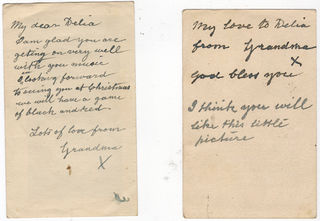 My dear Delia
I am glad you are
geting on very well
with you music
I looking forward
to seeing you at Christmas
we will have a game
of black and red
Lots of love from
Grandma
X
My love to Delia
from Grandma
X
God bless you
I think you will
like this little
picture